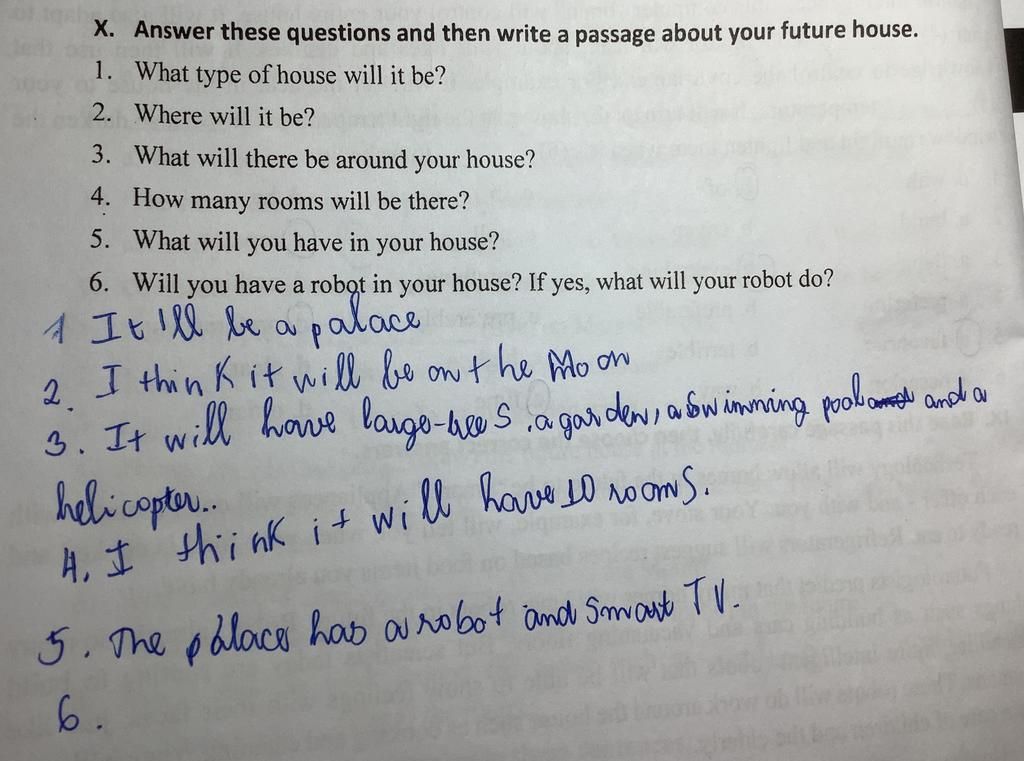 X. Answer these questions and then write a passage about your future house.
1. What type of house will it be?
2. Where will it be?
3. What will there be around your house?
4. How many rooms will be there?
5. What will you have in your house?
6. Will you have a robot in your house? If yes, what will your robot do?
1 It'll be a palace
2. I think it will be on the Moon
3. It will have large-trees, a garden, a swimming pool and a
helicopter..
4. I think it will have 10 rooms.
5. The palace has a robot and smart TV.
6.